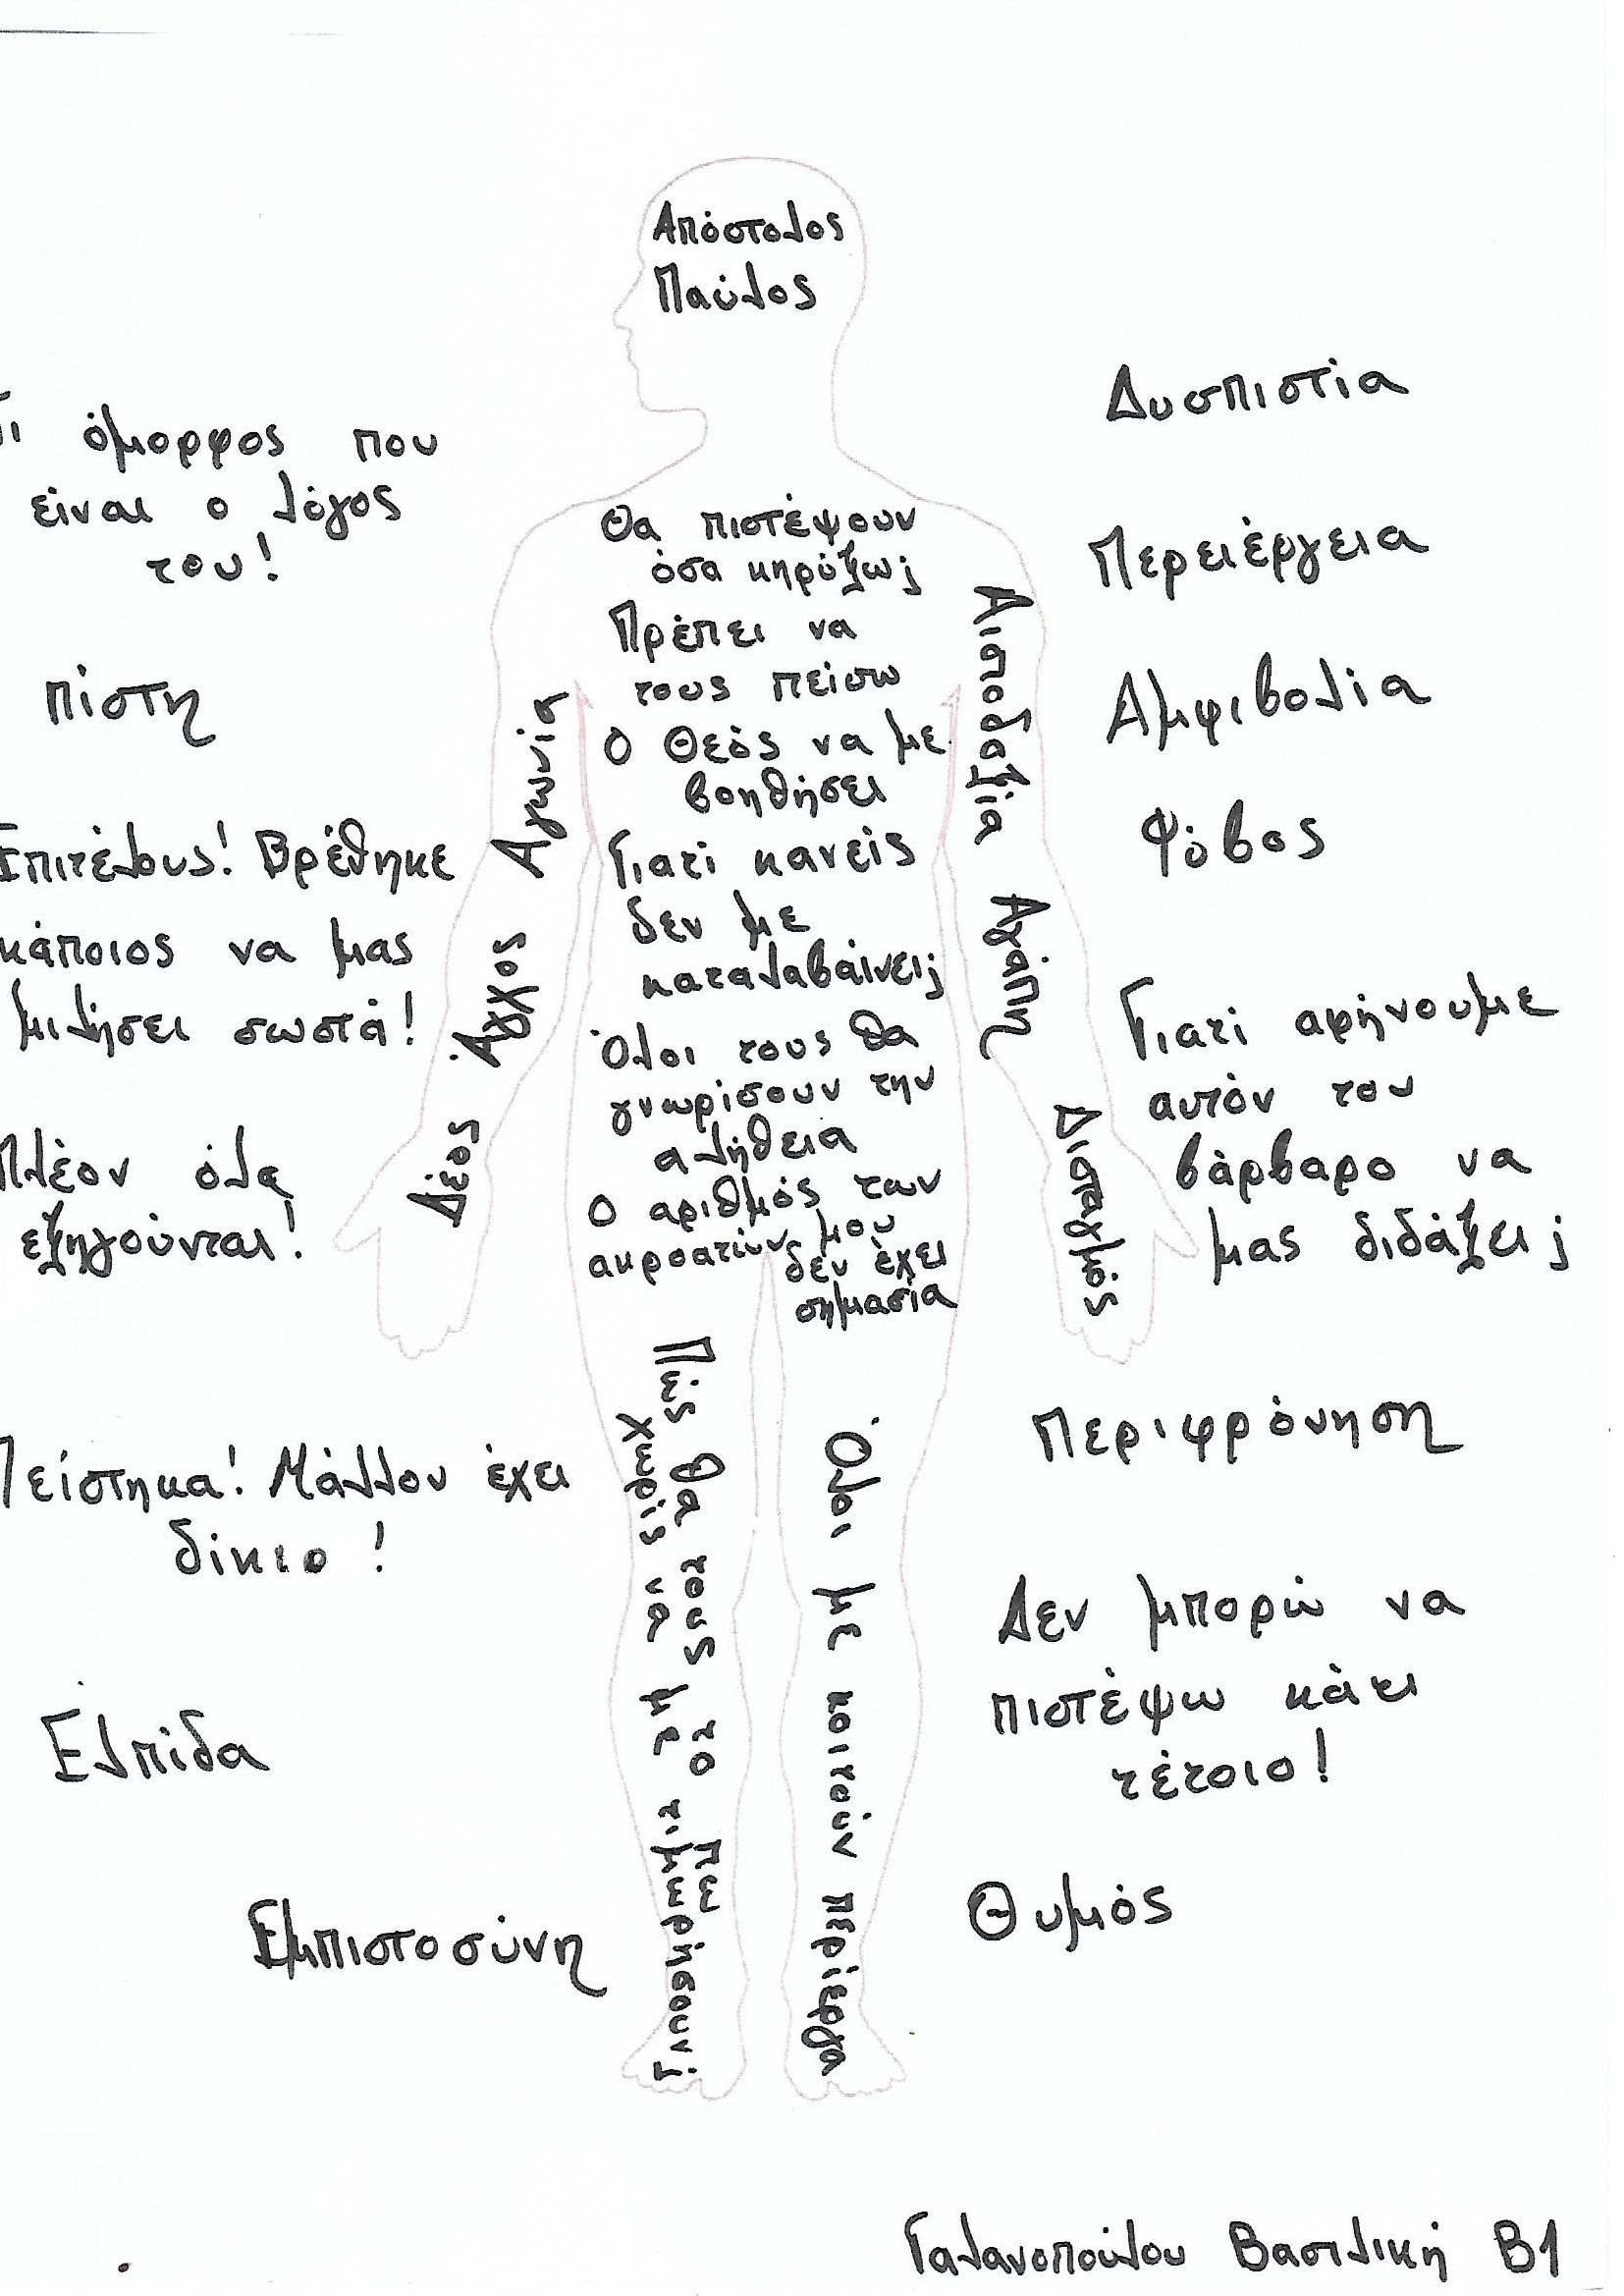 Απόστολος
Παύλος
Τι όμορφος που
είναι ο λόγος
του!
πίστη
Επιτέλους! Βρέθηκε
κάποιος να μας
μιλήσει σωστά!
Πλέον όλα
εξηγούνται!
Πείστηκα! Μάλλον έχει
δίκιο!
Ελπίδα
Εμπιστοσύνη
Αγωνία
Άγχος
Δέος
Θα πιστέψουν
όσα κηρύξω;
Πρέπει να
τους πείσω
Ο Θεός να με
βοηθήσει
Γιατί κανείς
δεν με
καταλαβαίνει;
Όλοι τους θα
γνωρίσουν την
αλήθεια
Ο αριθμός των
ακροατών μου
δεν έχει
σημασία
Αισιοδοξία
Αγάπη
Δισταγμός
Πώς θα τους το πω
χωρίς να με τιμωρήσουν;
Όλοι με κοιτούν περίεργα
Δυσπιστία
Περειέργεια
Αμφιβολία
Φόβος
Γιατί αφήνουμε
αυτόν τον
βάρβαρο να
μας διδάξει;
Περιφρόνηση
Δεν μπορώ να
πιστέψω κάτι
τέτοιο!
Θυμός
Γαλανοπούλου Βασιλική Β1